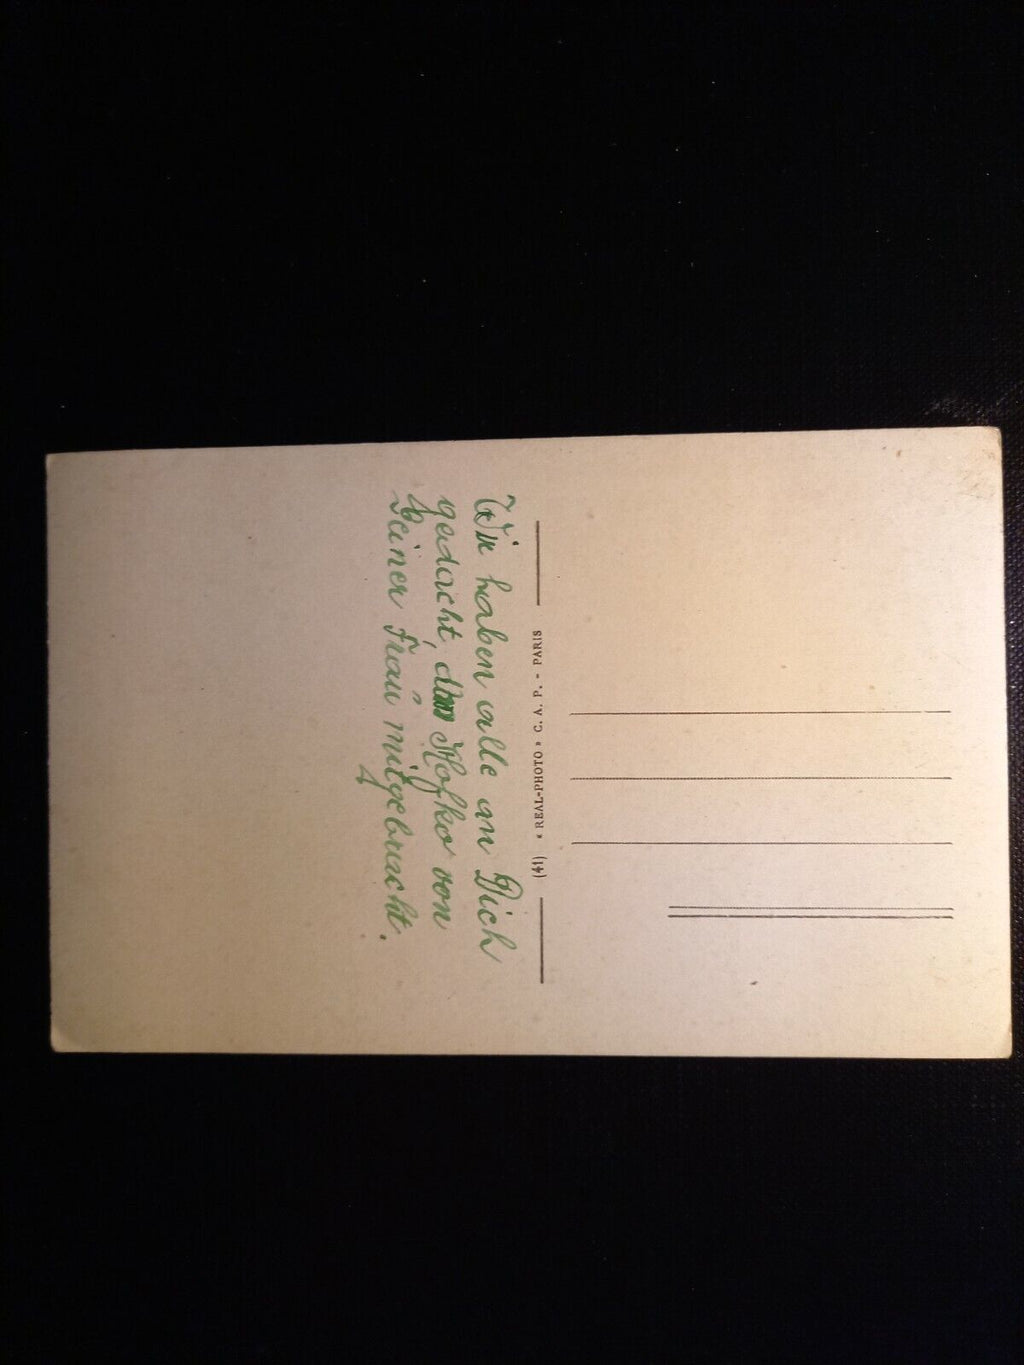 Wir haben alle an Dich
gedacht, von
Deiner Frau mitgebracht.
(41) « REAL-PHOTO » C. A. P. - PARIS